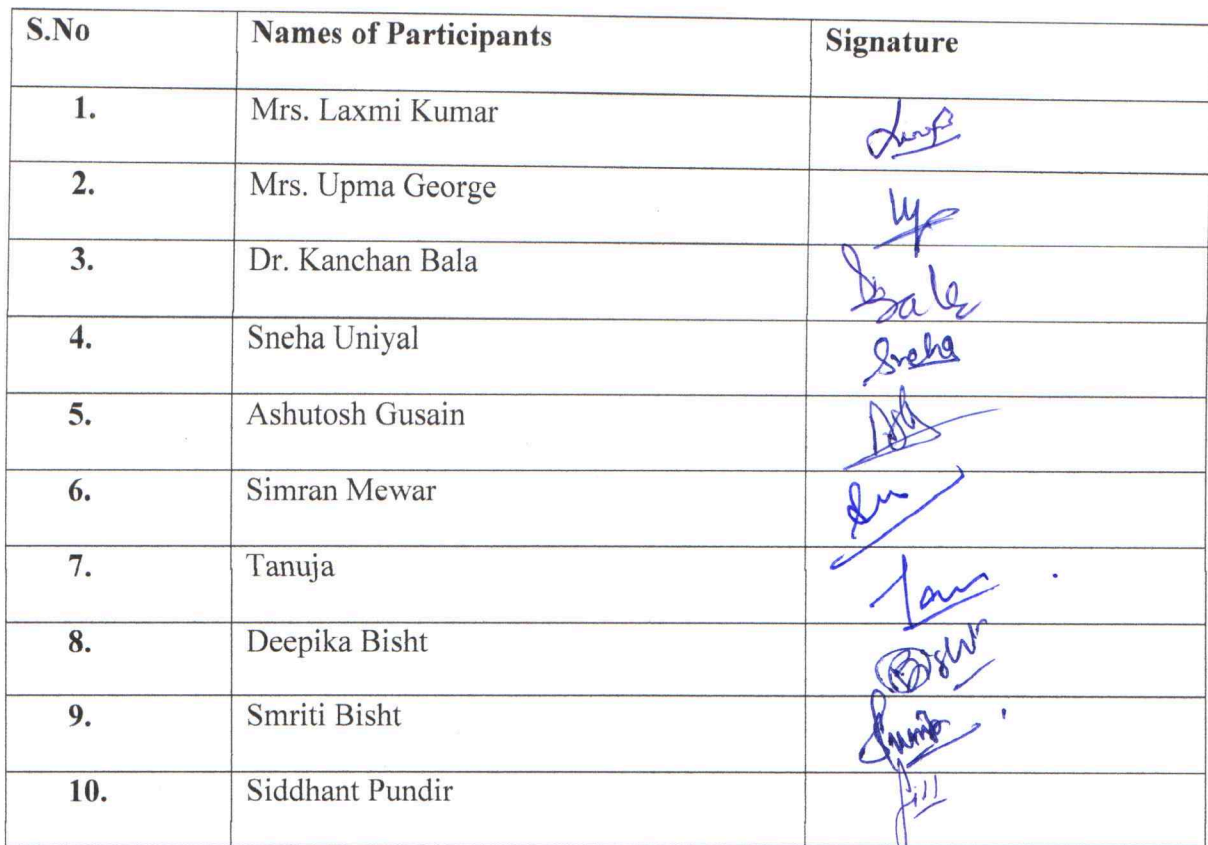 S.No Names of Participants Signature
1. Mrs. Laxmi Kumar
2. Mrs. Upma George
3. Dr. Kanchan Bala Bala
4. Sneha Uniyal Sneha
5. Ashutosh Gusain
6. Simran Mewar
7. Tanuja
8. Deepika Bisht Bisht
9. Smriti Bisht
10. Siddhant Pundir